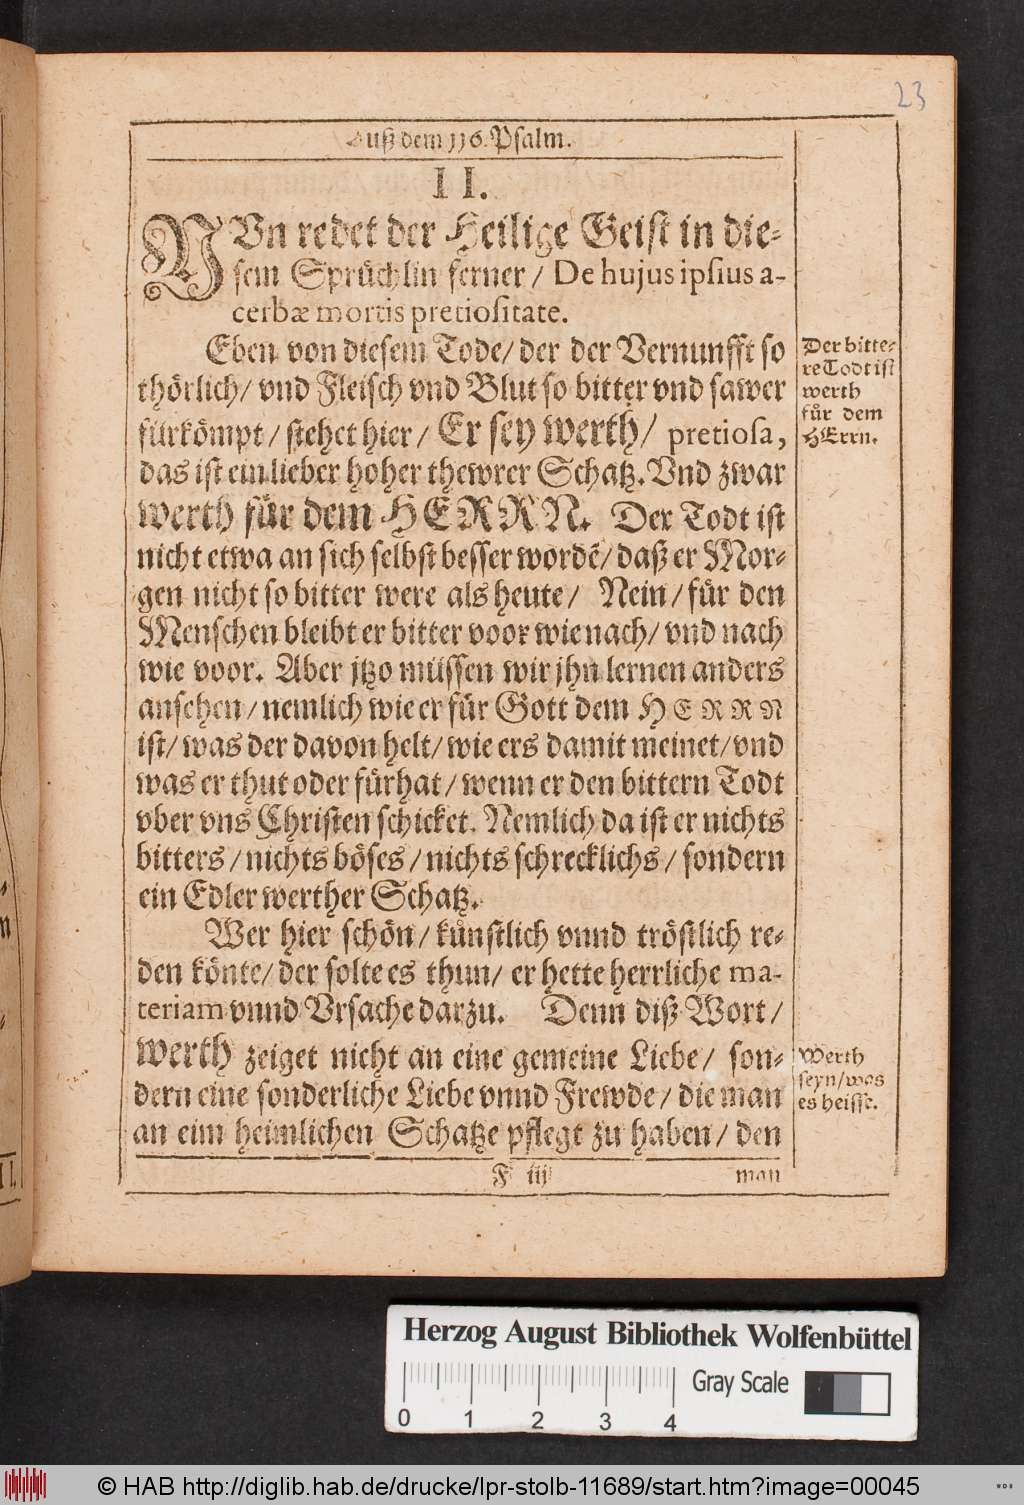 23
Auß dem 116. Psalm.
II.
NVn redet der Heilige Geist in die-
sem Sprüchlin ferner / De hujus ipsius a-
cerbæ mortis pretiositate.
Eben von diesem Tode / der der Vernunfft so
thörlich / vnd Fleisch vnd Blut so bitter vnd sawer
fürkömpt / stehet hier / Er sey werth / pretiosa,
das ist ein lieber hoher thewrer Schatz. Vnd zwar
werth für dem HERRN. Der Todt ist
nicht etwa an sich selbst besser wordẽ / daß er Mor-
gen nicht so bitter were als heute / Nein / für den
Menschen bleibt er bitter voor wie nach / vnd nach
wie voor. Aber jtzo müssen wir jhn lernen anders
ansehen / nemlich wie er für Gott dem HERRN
ist / was der davon helt / wie ers damit meinet / vnd
was er thut oder fürhat / wenn er den bittern Todt
vber vns Christen schicket. Nemlich da ist er nichts
bitters / nichts böses / nichts schrecklichs / sondern
ein Edler werther Schatz.
Wer hier schön / kůnstlich vnnd tröstlich re-
den könte / der solte es thun / er hette herrliche ma-
teriam vnnd Vrsache darzu. Denn diß Wort /
werth zeiget nicht an eine gemeine Liebe / son-
dern eine sonderliche Liebe vnnd Frewde / die man
an eim heimlichen Schatze pflegt zu haben / den
F iij
man
Der bitte-
re Todt ist
werth
fůr dem
HErrn.
Werth
seyn / was
es heisse.
Herzog August Bibliothek Wolfenbüttel
0 1 2 3 4
Gray Scale
© HAB http://diglib.hab.de/drucke/lpr-stolb-11689/start.htm?image=00045